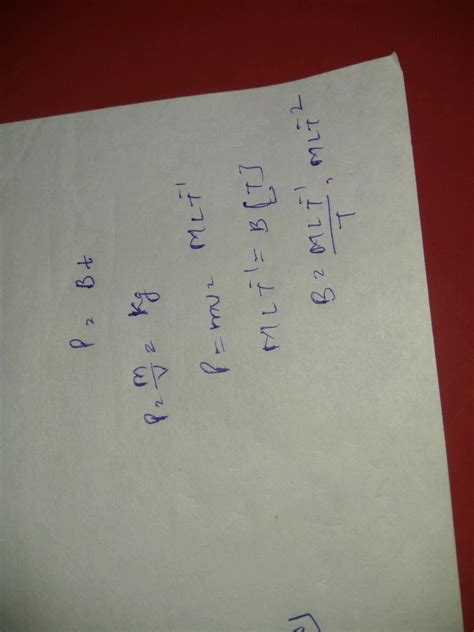 P = Bt
P = m/V = Kg
P = mv = MLT⁻¹
MLT⁻¹ = B[T]
B = MLT⁻¹/T, MLT⁻²